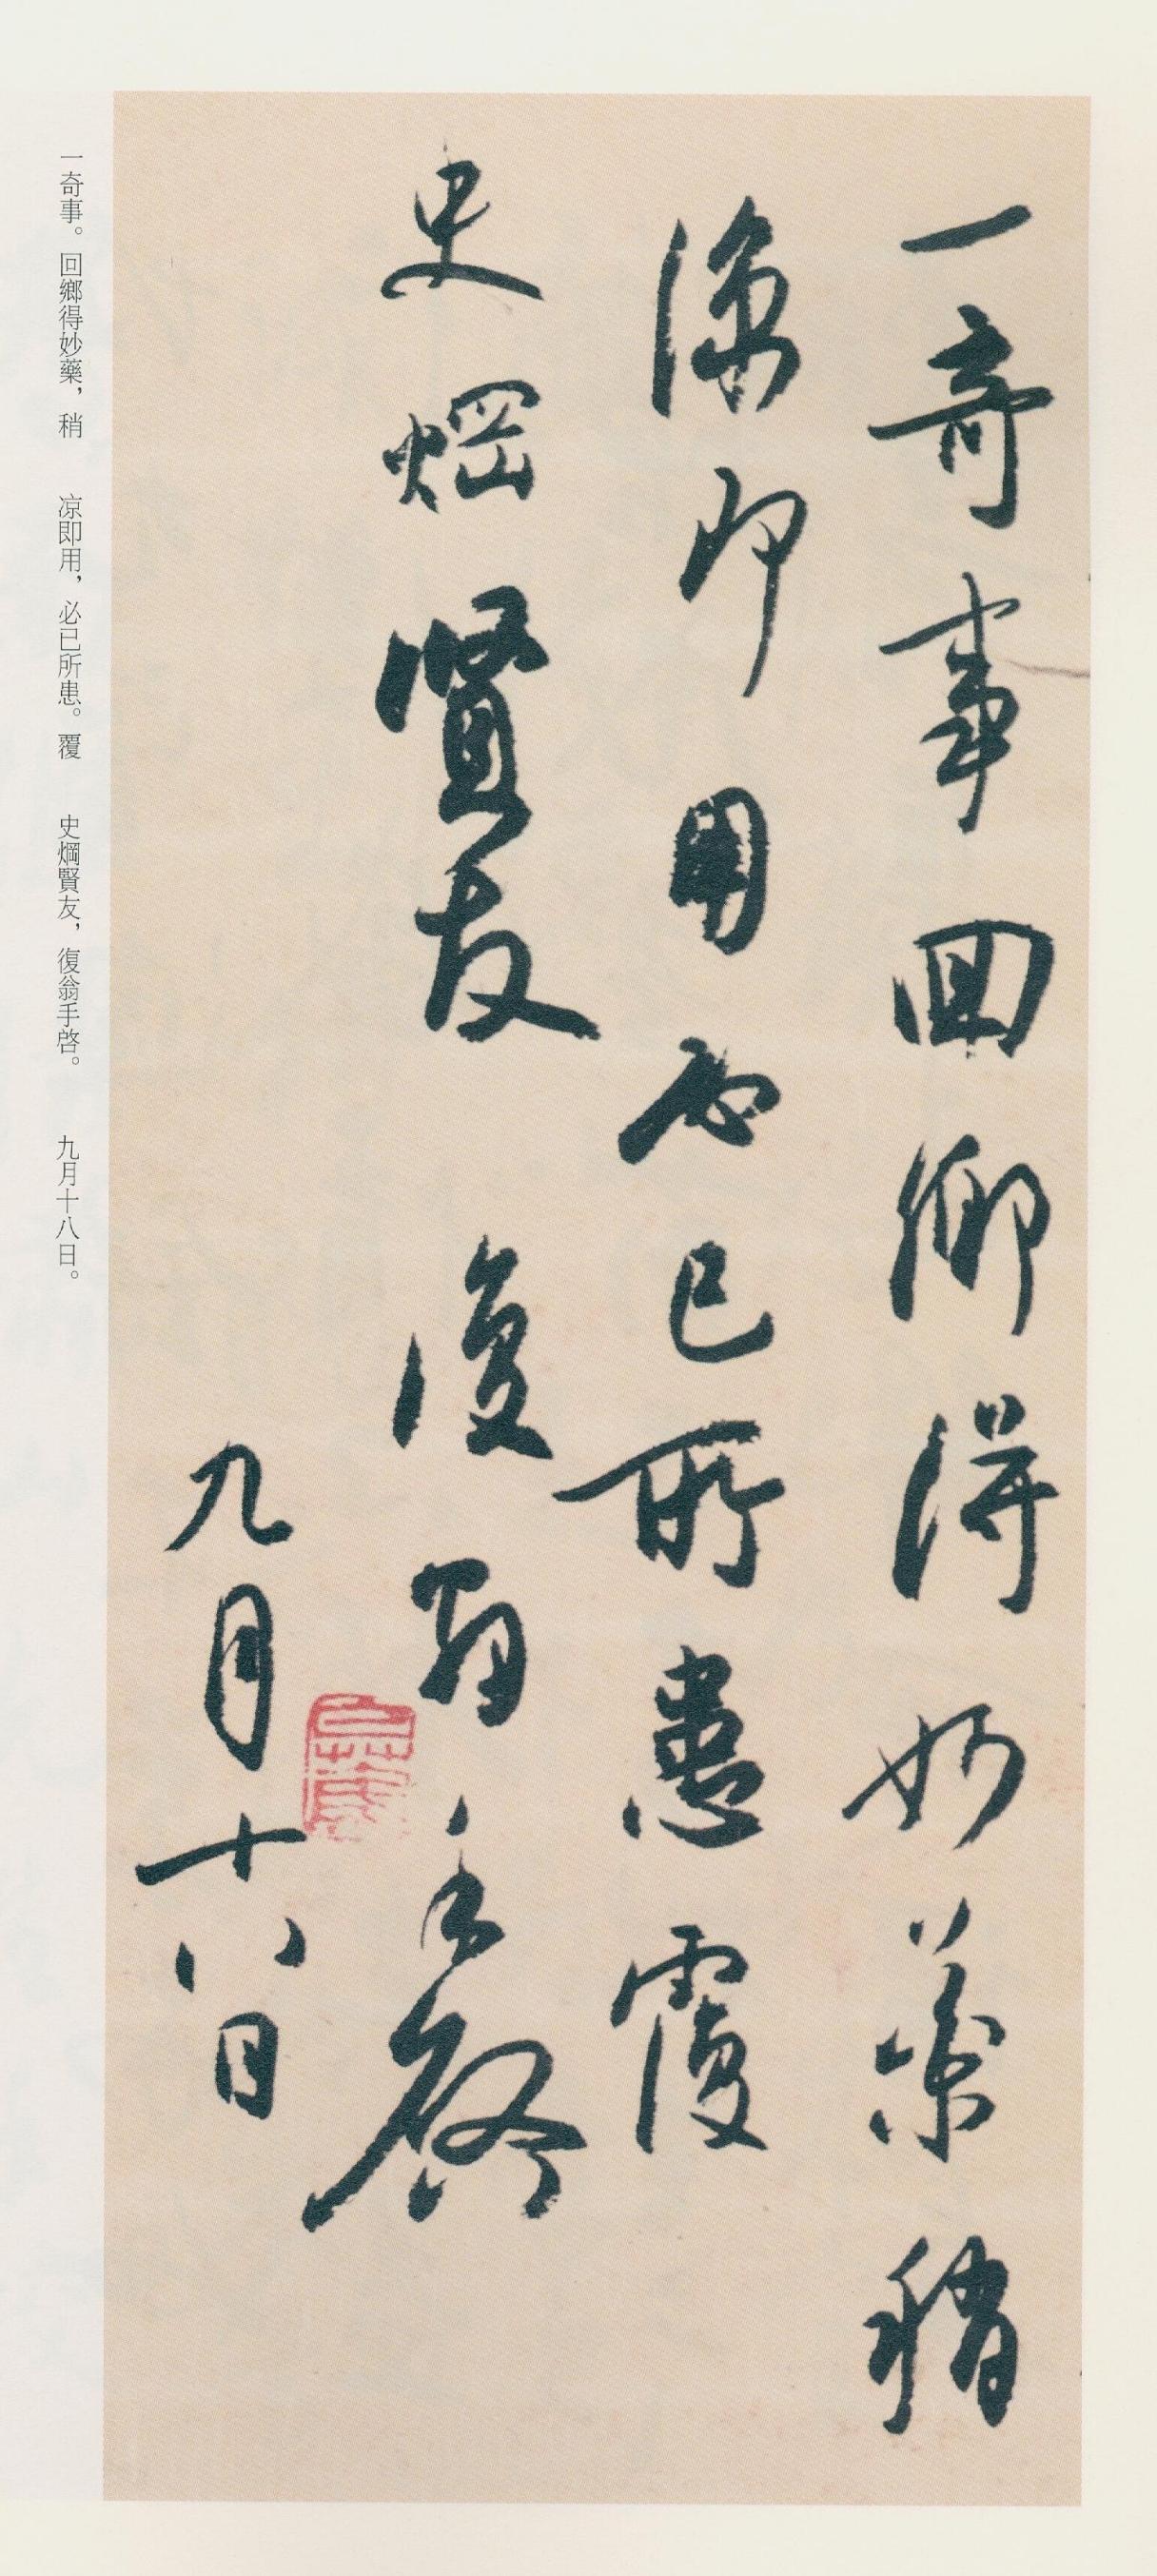 一奇事回鄉得妙藥稍
涼即用必已所患覆
史焵賢友 復翁手啓
九月十八日
一奇事。回鄉得妙藥，稍　涼即用，必已所患。覆　史焵賢友，復翁手啓。　九月十八日。